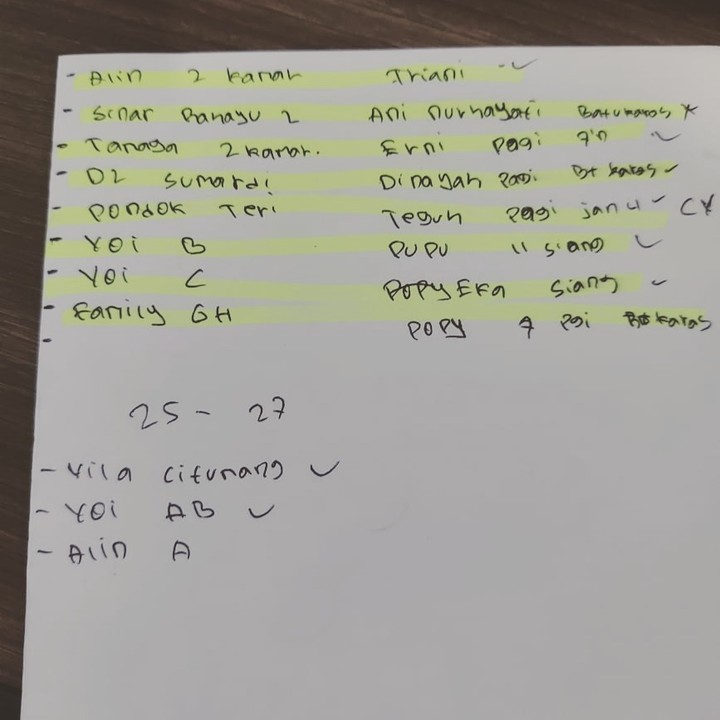 - Alin 2 kamar Triani ✓
- Sinar Rahayu 2 Ani Nurhayati Batukaras *
- Tanaga 2 kamar. Erni Pagi ✓
- D2 Sumardi Dinayah Pagi Bt karas ✓
- Pondok Teri Teguh Pagi jam 4 ✓
- Yoi B PUPU 11 siang ✓
- Yoi C POPY Eka Siang ✓
- Family GH POPY 9 Pgi Bt karas
-
25 - 27
- Vila Citumang ✓
- Yoi AB ✓
- Alin A